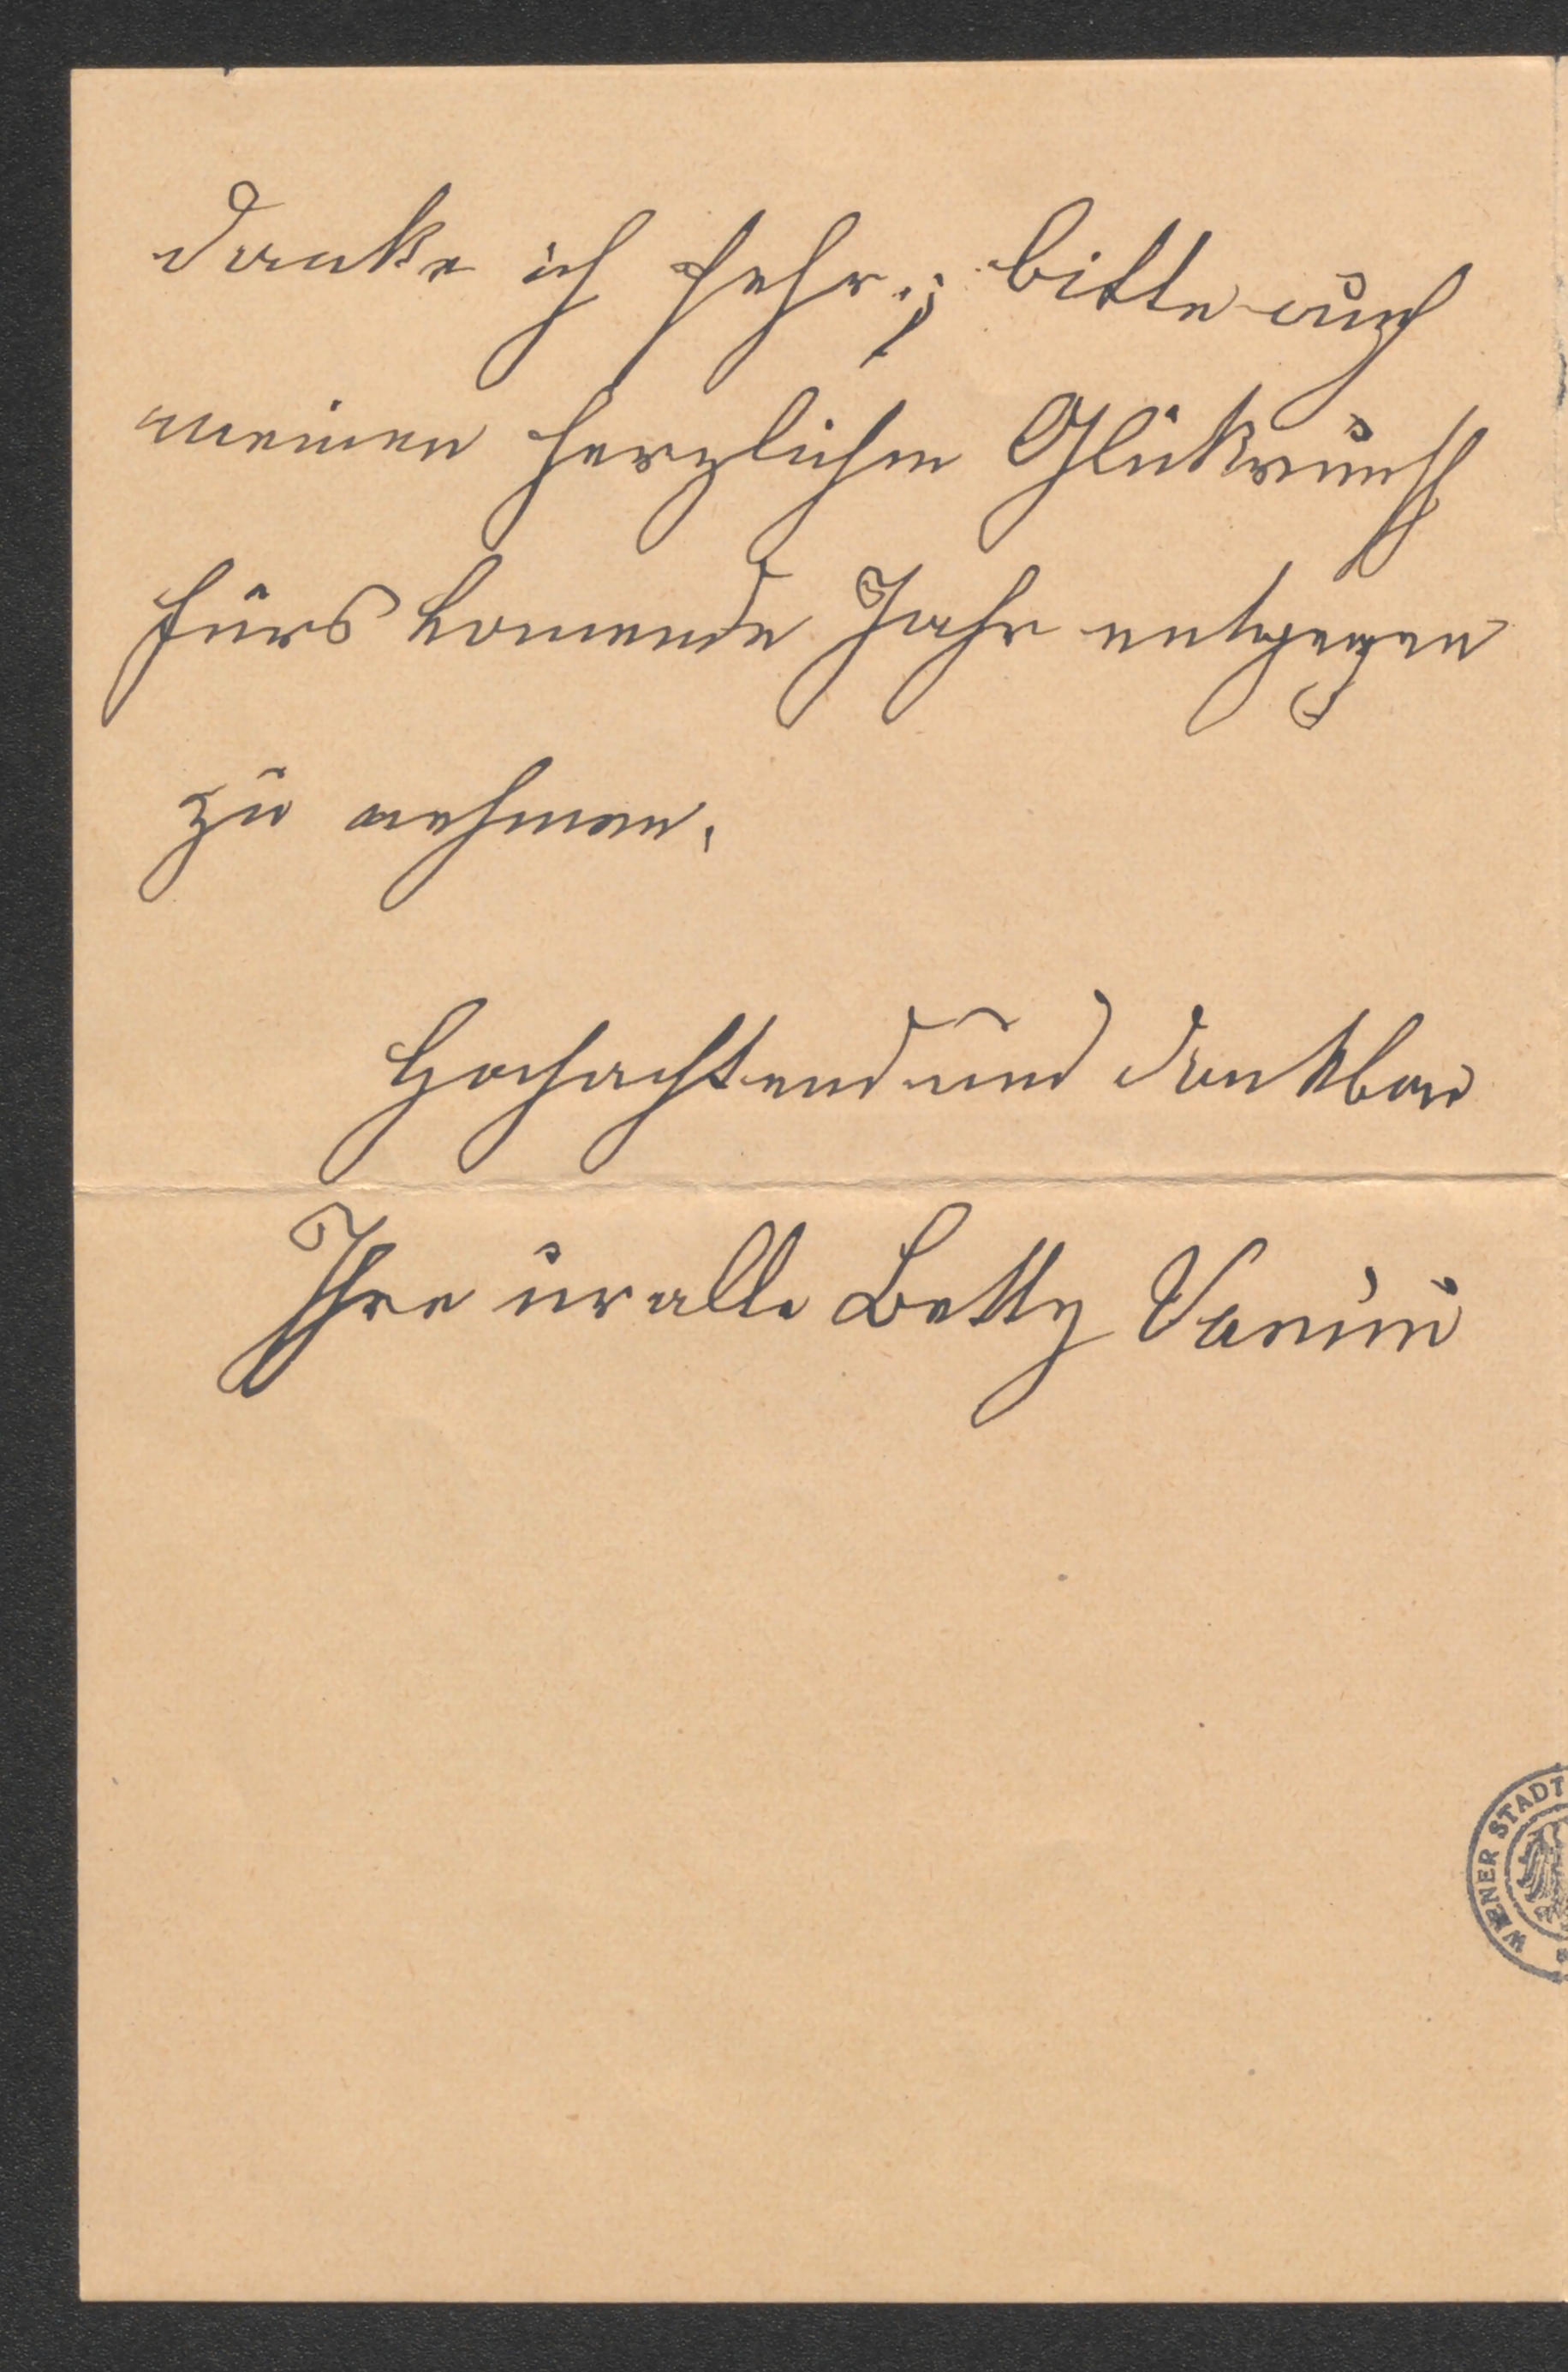 danke ich sehr; bitte auch
meinen herzlichen Glükwunsch
fürs komende Jahr entgegen
zu nehmen.
Hochachtend und dankbar
Ihre uralte Betty Vanini
WIENER STADT